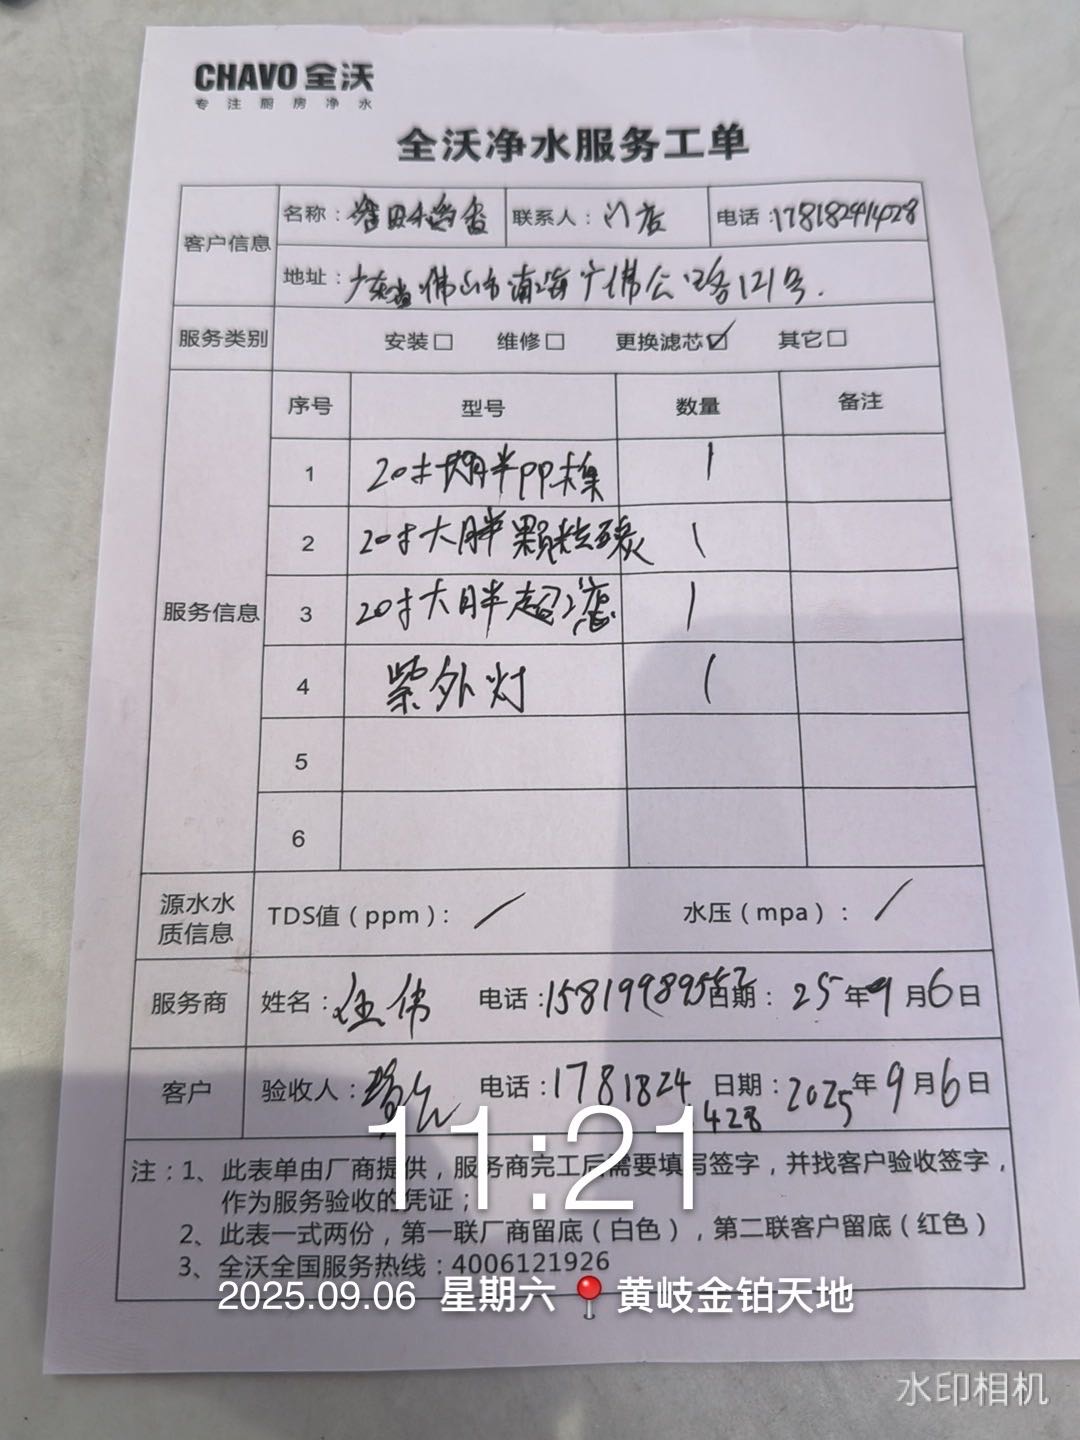 CHAVO 全沃
专注厨房净水
全沃净水服务工单
客户信息 名称： 联系人：门店 电话：17818241428
地址：广东省佛山市南海广佛公路121号.
服务类别 安装□ 维修□ 更换滤芯☑ 其它□
服务信息 序号 型号 数量 备注
1 20寸大胖PP棉 1
2 20寸大胖颗粒碳 1
3 20寸大胖超滤 1
4 紫外灯 1
5
6
源水水质信息 TDS值（ppm）：/ 水压（mpa）：/
服务商 姓名：伍伟 电话：15819989552 日期：25年9月6日
客户 验收人： 电话：17818241428 日期：2025年9月6日
11:21
注：1、此表单由厂商提供，服务商完工后需要填写签字，并找客户验收签字，
作为服务验收的凭证；
2、此表一式两份，第一联厂商留底（白色），第二联客户留底（红色）
3、全沃全国服务热线：4006121926
2025.09.06 星期六 黄岐金铂天地
水印相机